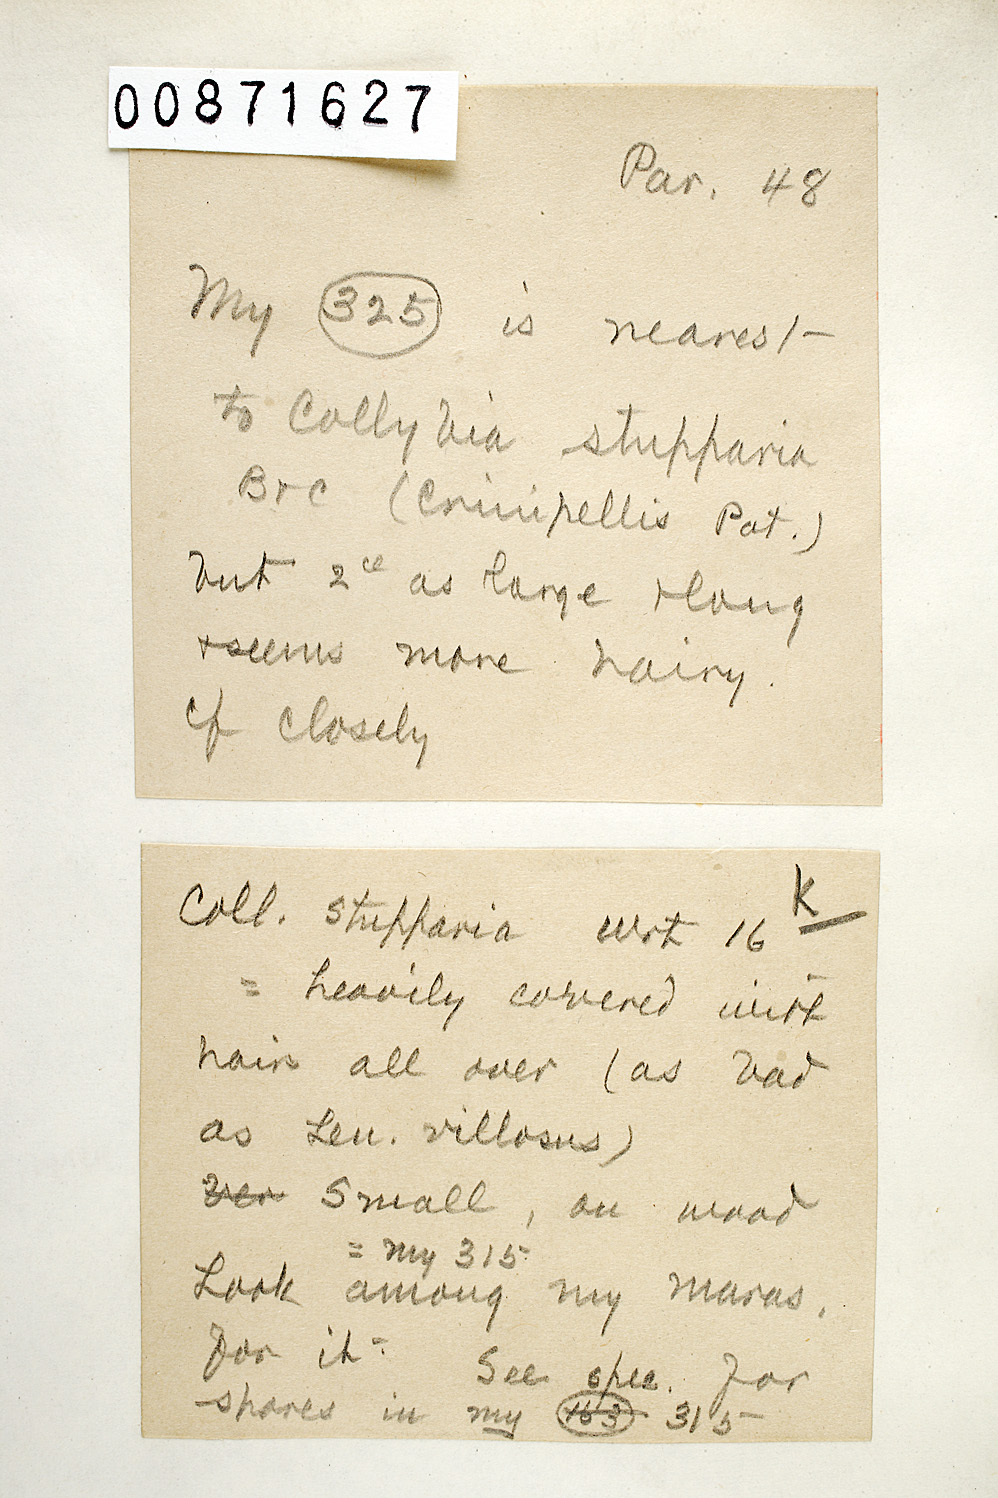 00871627
Par. 48
My 325 is nearest
to Collybia stupparia
B & C (Crinipellis Pat.)
but 2ce as large & long
& seems more hairy.
cf closely
Coll. stupparia Wrt 16 K
= heavily covered with
hair all over (as bad
as Len. villosus)
Ver Small, on wood
= my 315
Look among my Maras.
for it = See spec. for
spores in my 163 315